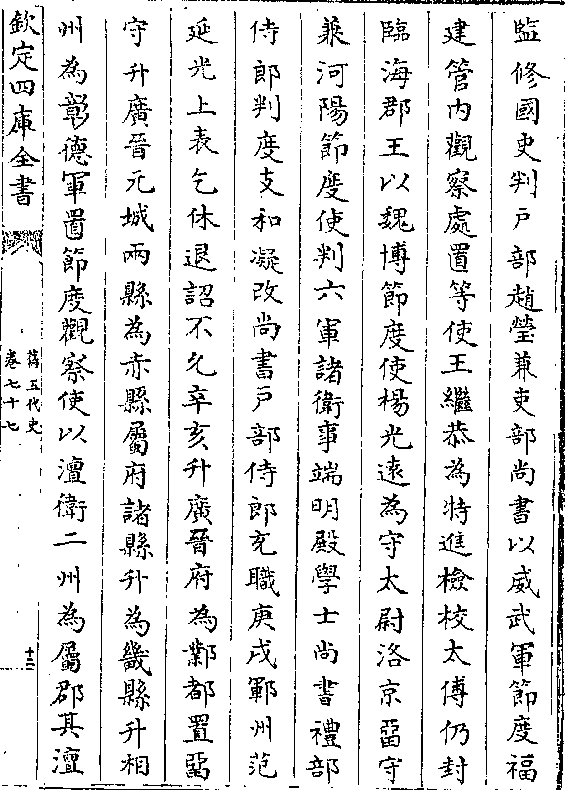 監修國史判戶部趙瑩兼吏部尚書以威武軍節度福
建管内觀察處置等使王繼恭為特進檢校太傅仍封
臨海郡王以魏博節度使楊光遠為守太尉洛京畱守
兼河陽節度使判六軍諸衛事端明殿學士尚書禮部
侍郎判度支和凝改尚書戶部侍郎充職庚戌鄆州范
延光上表乞休退詔不允辛亥升廣晉府為鄴都置畱
守升廣晉元城兩縣為赤縣屬府諸縣升為畿縣升相
州為彰德軍置節度觀察使以澶衛二州為屬郡其澶
欽定四庫全書
舊五代史
卷七十七
十三